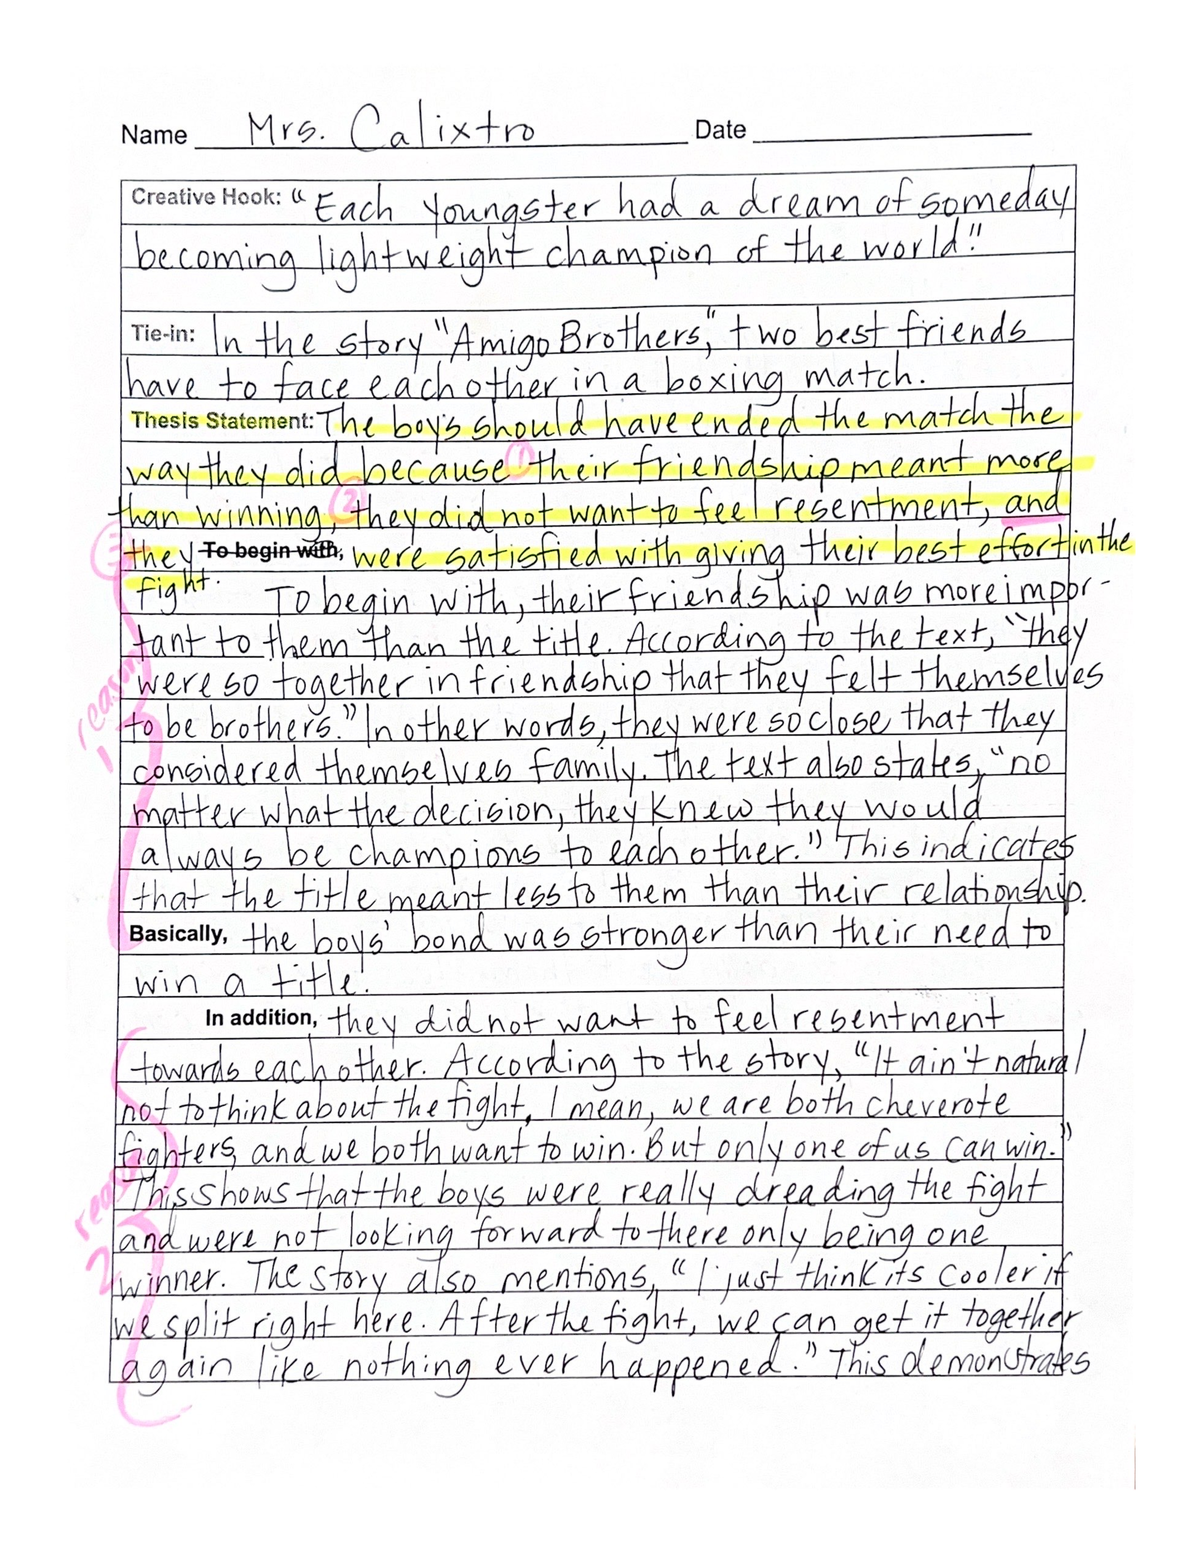 Name Mrs. Calixtro Date
Creative Hook: "Each youngster had a dream of someday
becoming lightweight champion of the world."
Tie-in: In the story "Amigo Brothers," two best friends
have to face each other in a boxing match.
Thesis Statement: The boys should have ended the match the
way they did because ① their friendship meant more
than winning, ② they did not want to feel resentment, and
③ they To begin with, were satisfied with giving their best effort in the
fight. To begin with, their friendship was more impor-
tant to them than the title. According to the text, "they
were so together in friendship that they felt themselves
to be brothers." In other words, they were so close that they
considered themselves family. The text also states, "no
matter what the decision, they knew they would
always be champions to each other." This indicates
that the title meant less to them than their relationship.
Basically, the boys' bond was stronger than their need to
win a title.
reason 1
In addition, they did not want to feel resentment
towards each other. According to the story, "It ain't natural
not to think about the fight, I mean, we are both cheverote
fighters, and we both want to win. But only one of us can win."
This shows that the boys were really dreading the fight
and were not looking forward to there only being one
winner. The story also mentions, "I just think its cooler if
we split right here. After the fight, we can get it together
again like nothing ever happened." This demonstrates
reason 2